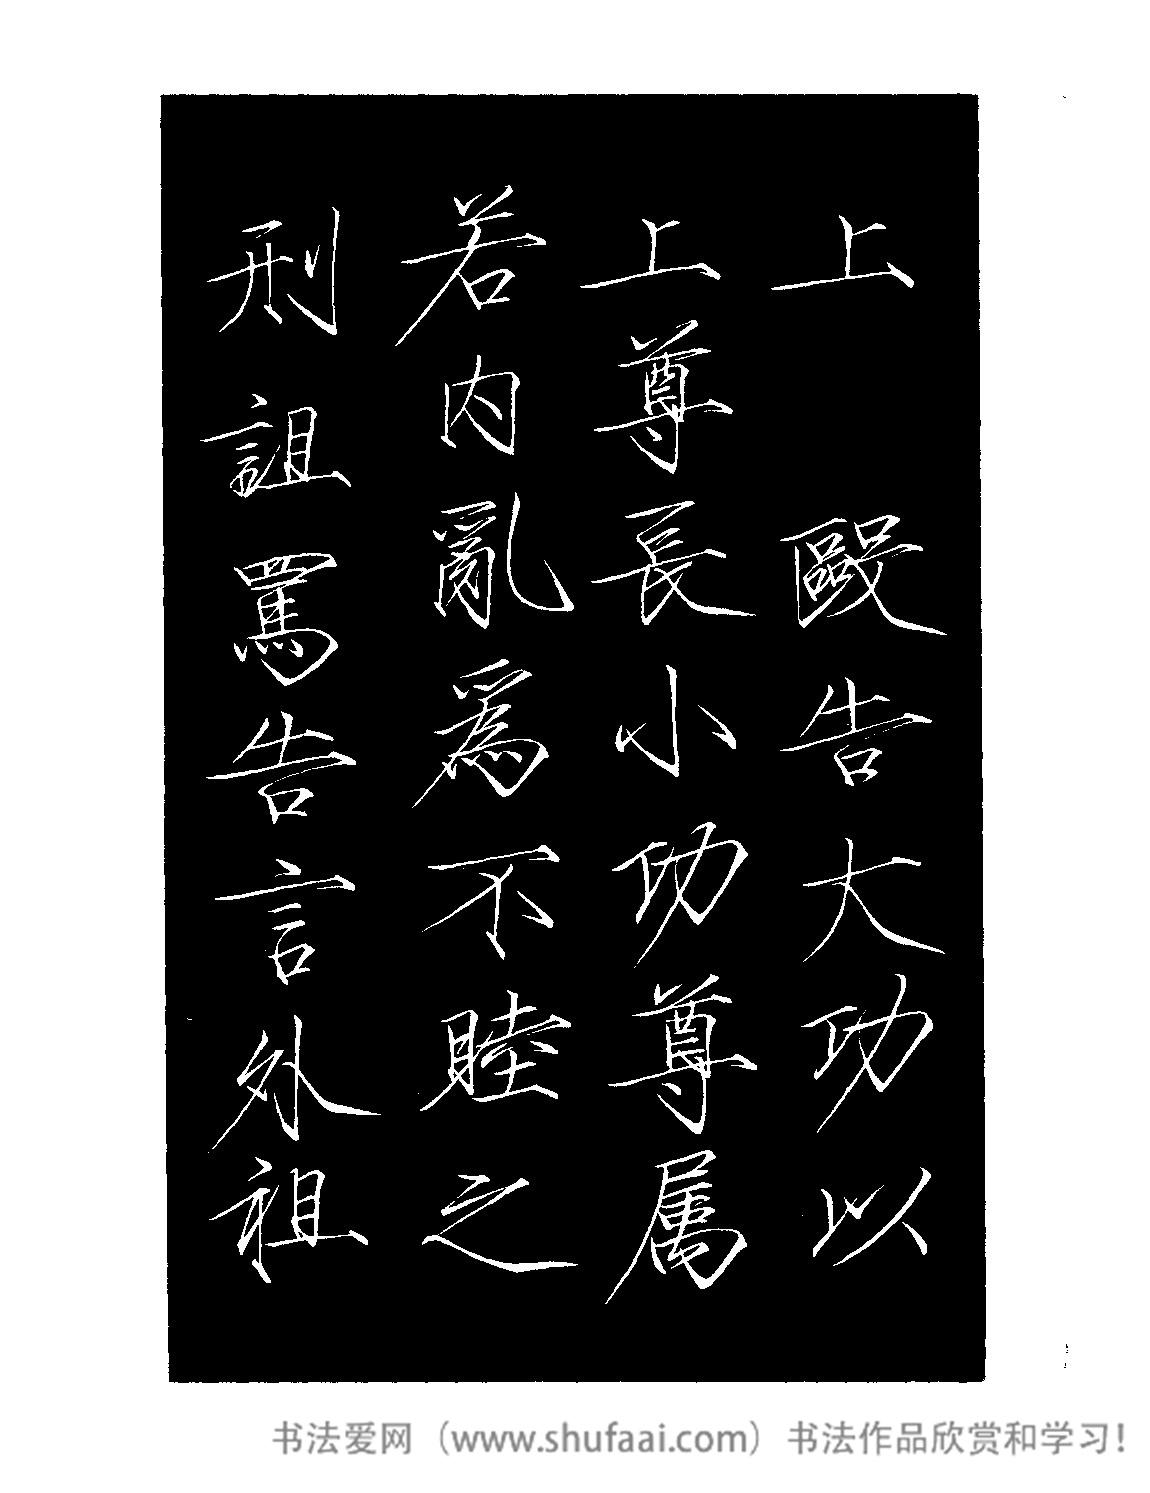 上 毆告大功以
上尊長小功尊属
若内亂爲不睦之
刑詛罵告言外祖
书法爱网（www.shufaai.com）书法作品欣赏和学习！